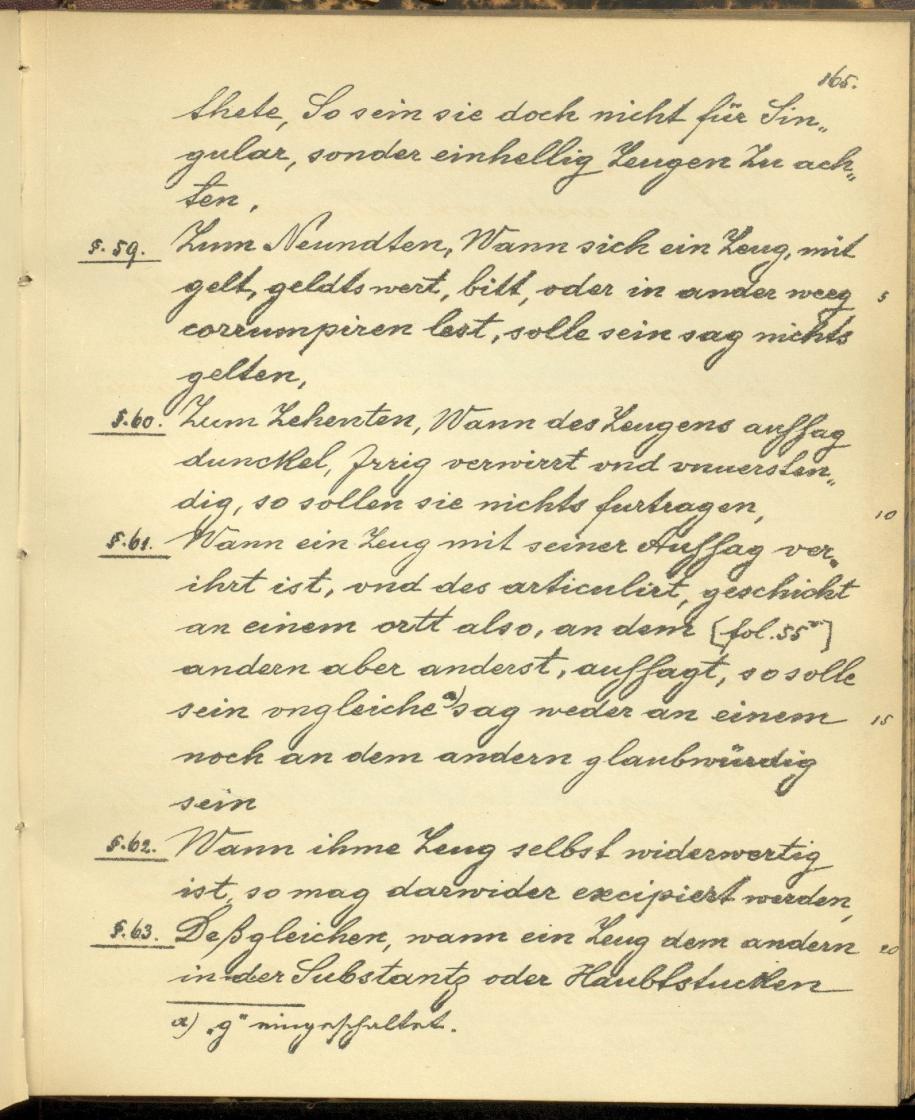 165.
thete, So sein sie doch nicht für Sin„
gular, sonder einhellig Zeugen Zu ach„
ten,
§. 59. Zum Neundten, Wann sich ein Zeug, mit
gelt, geldtswert, bitt, oder in ander weeg 5
corrumpiren lest, solle sein sag nichts
gelten,
§. 60. Zum Zehenten, Wann des Zeugens aussag
dunckel, Jrrig verwirrt vnd vnuersten„
dig, so sollen sie nichts furtragen, 10
§. 61. Wann ein Zeug mit seiner Aussag ver„
ihrt ist, vnd des articulirt, geschickt
an einem ortt also, an dem [fol. 55 ]
andern aber anderst, aussagt, so solle
sein vngleiche a) sag weder an einem 15
noch an dem andern glaubwürdig
sein
§. 62. Wann ihme Zeug selbst widerwertig
ist, so mag darwider excipiert werden,
§. 63. Deßgleichen, wann ein Zeug dem andern 20
in der Substantz oder Haubtstucken
a) „g" eingeschaltet.